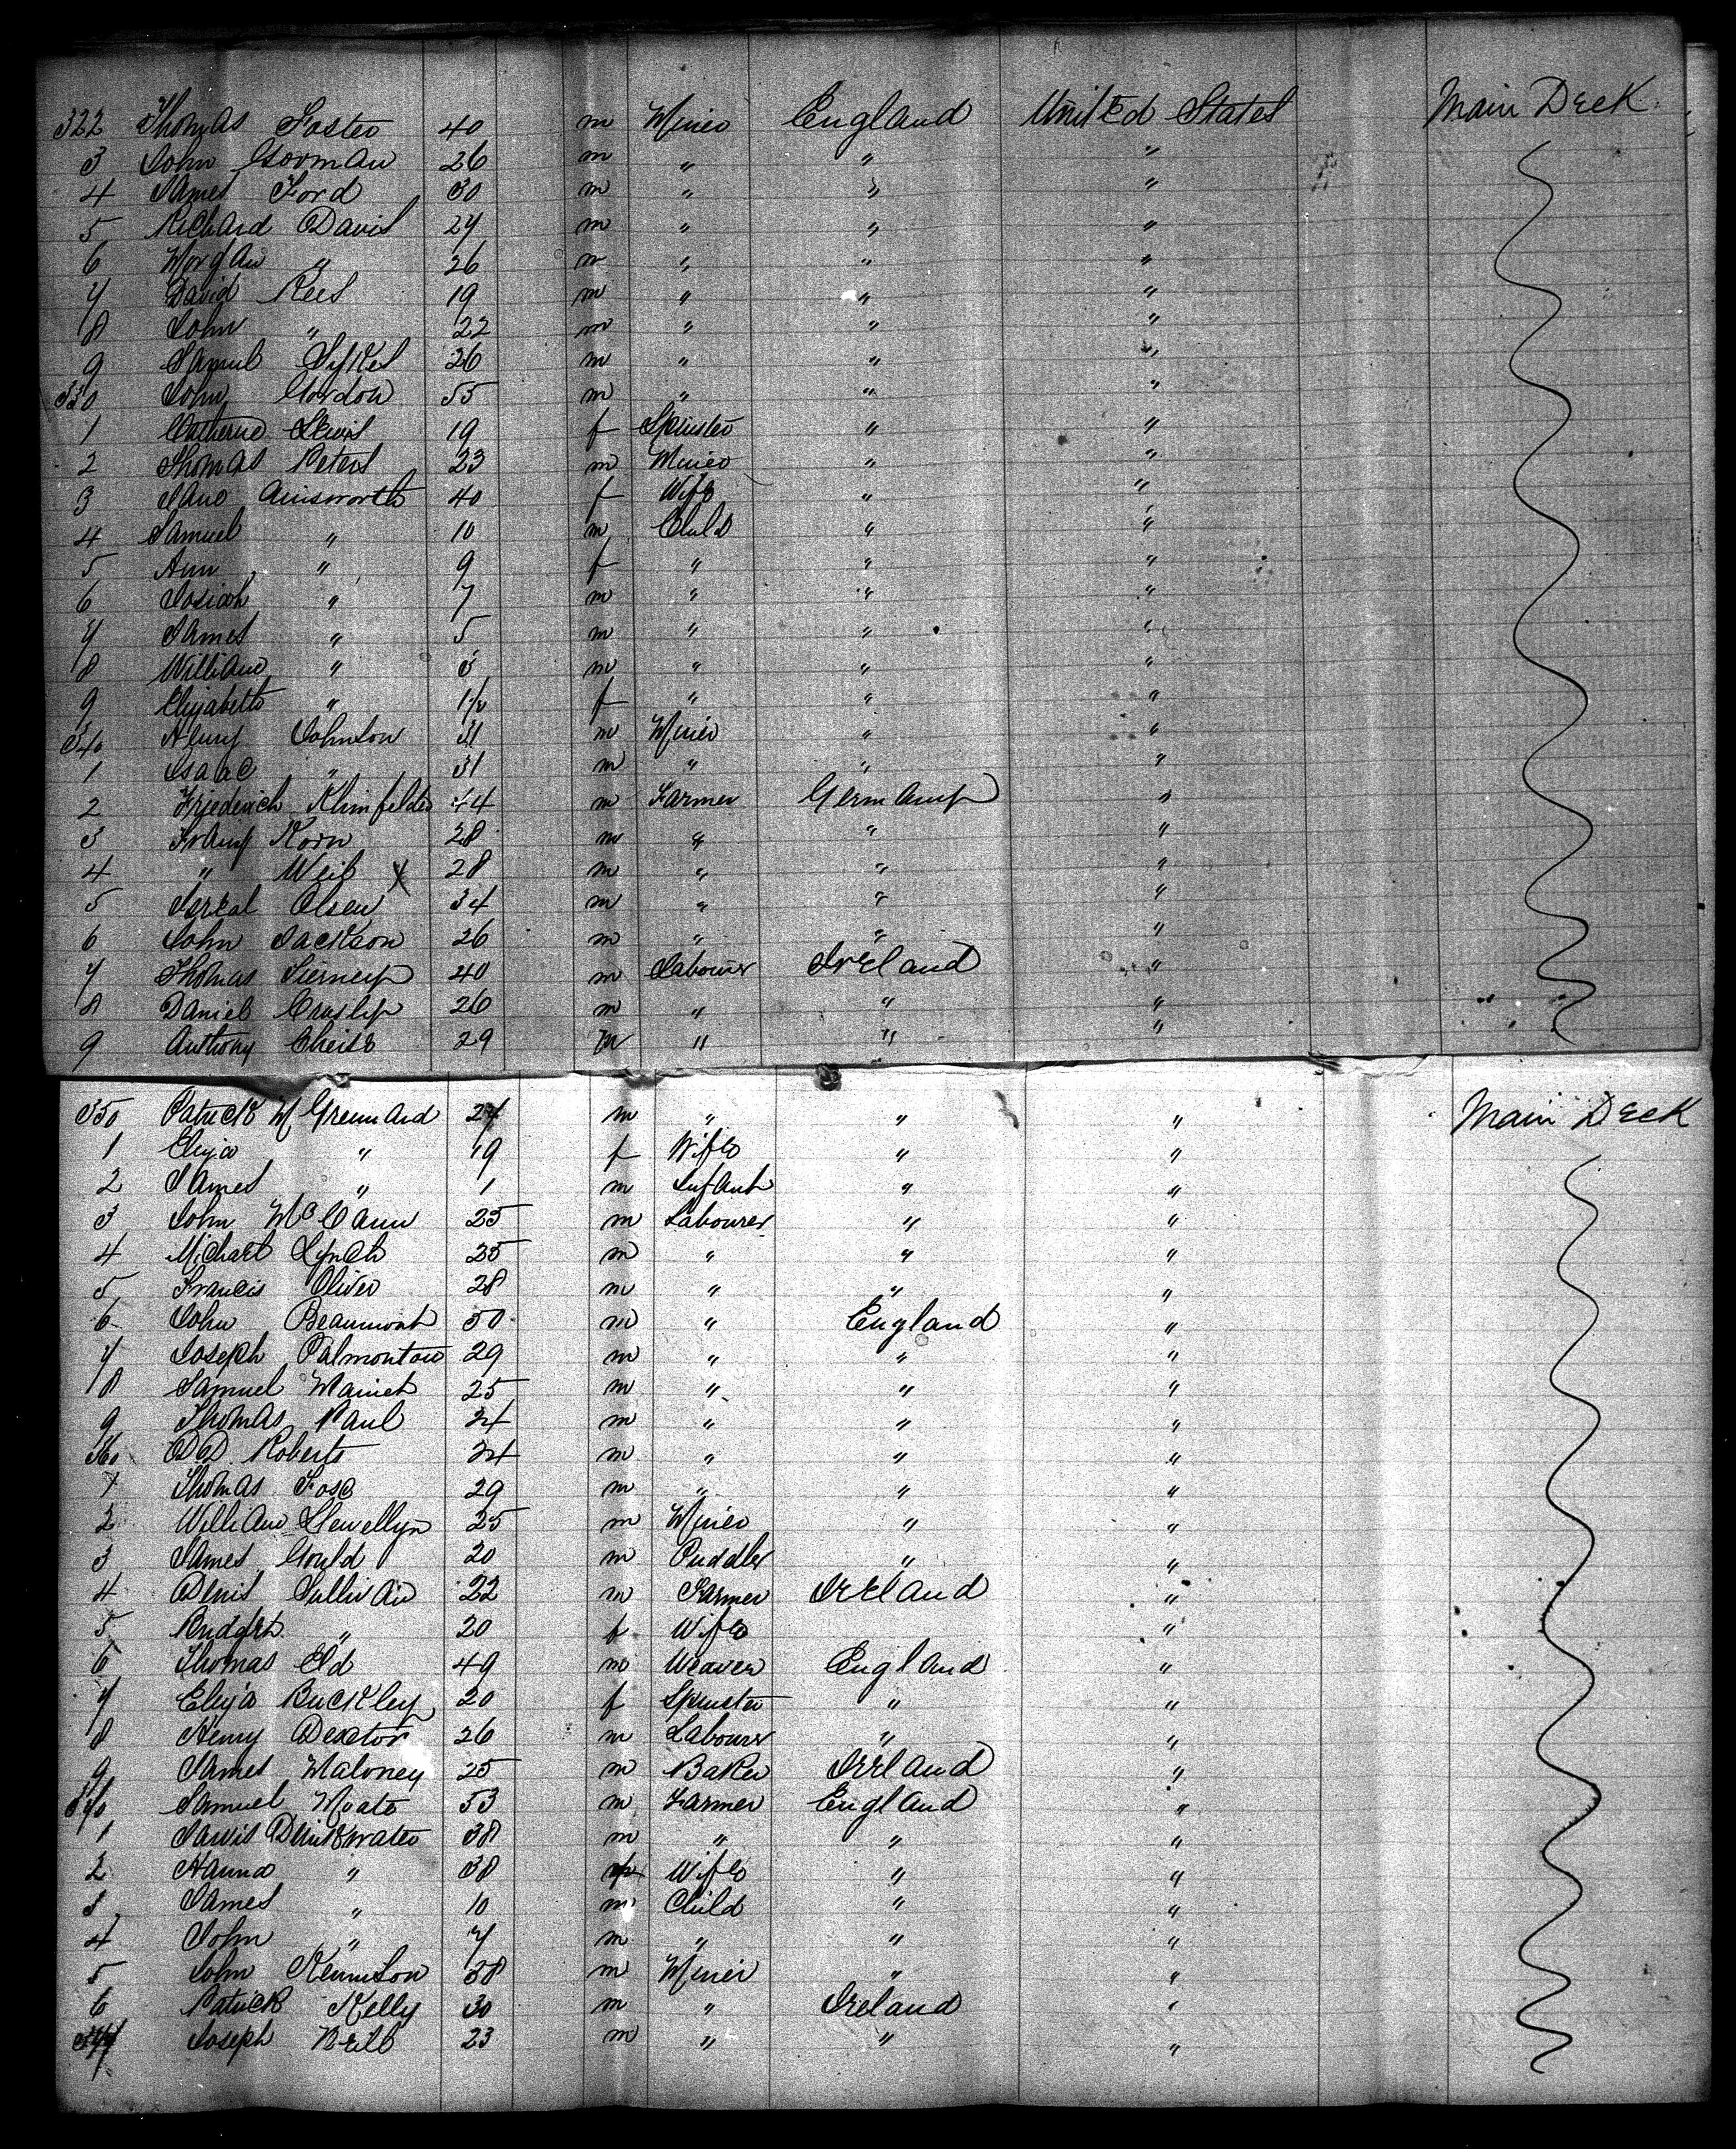 322 Thomas Foster 40 m Miner England United States Main Deck
3 John Gorman 26 m " " "
4 James Ford 30 m " " "
5 Richard Davis 24 m " " "
6 Morgan " 26 m " " "
7 David Rees 19 m " " "
8 John " 22 m " " "
9 Samul Sykes 26 m " " "
330 John Gordon 55 m " " "
1 Catherine Lewis 19 f Spinster " "
2 Thomas Peters 23 m Miner " "
3 Jane Ainsworth 40 f Wife " "
4 Samuel " 10 m Child " "
5 Ann " 9 f " " "
6 Josiah " 7 m " " "
7 James " 5 m " " "
8 William " 3 m " " "
9 Elizabeth " f " " "
340 Henry Johnson 31 m Miner " "
1 Isaac " 31 m " " "
2 Friederich Klinfelder 44 m Farmer Germany "
3 Franz Korn 28 m " " "
4 " Weib x 28 m " " "
5 Isreal Olsen 34 m " " "
6 John Jackson 26 m " " "
7 Thomas Tierney 40 m Labourer Ireland "
8 Daniel 26 m " " "
9 Anthony 29 m " " "
350 Patrick 27 m " " " Main Deck
1 Eliza " 19 f Wife " "
2 James " 1 m Infant " "
3 John McCann 25 m Labourer " "
4 Michael Lynch 25 m " " "
5 Francis Oliver 28 m " " "
6 John Beaumont 50 m " England "
7 Joseph Palmontan 29 m " " "
8 Samuel 25 m " " "
9 Thomas Paul 24 m " " "
360 D.D. Roberts 24 m " " "
1 Thomas 29 m " " "
2 William Llewellyn 25 m Miner " "
3 James Gould 20 m Puddler " "
4 Denis Sullivan 22 m Farmer Ireland "
5 Bridget " 20 f Wife "
6 Thomas Eld 49 m Weaver England "
7 Eliza Buckley 20 f Spinster " "
8 Henry Dexter 26 m Labourer " "
9 James Maloney 25 m Baker Ireland "
370 Samuel Moate 53 m Farmer England "
1 Jarvis Drinkwater 38 m " " "
2 Hanna " 38 f Wife " "
3 James " 10 m Child " "
4 John " 7 m " " "
5 John Kennison 38 m Miner " "
6 Patrick Kelly 30 m " Ireland "
377 Joseph Neill 23 m " " "